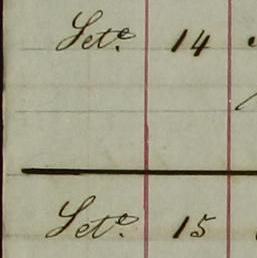 Sete. 14
Sete. 15